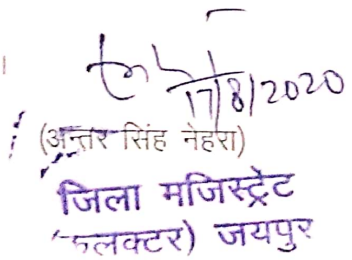 17/8/2020
(अन्तर सिंह नेहरा)
जिला मजिस्ट्रेट
कलक्टर) जयपुर